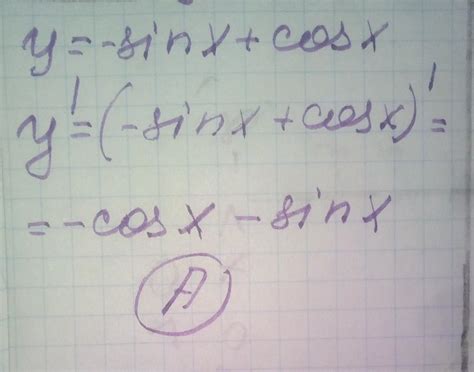 y=-sinx+cosx
y'=(-sinx+cosx)'=
=-cosx-sinx
A